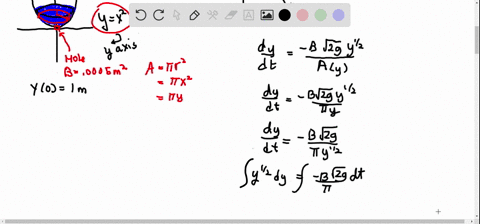 y = x²
y axis
Hole
B = .0005 m²
Y(0) = 1 m
A = πr²
= πx²
= πy
dy/dt = -B√2g y^1/2 / A(y)
dy/dt = -B√2g y^1/2 / πy
dy/dt = -B√2g / πy^1/2
∫ y^1/2 dy = ∫ -B√2g / π dt